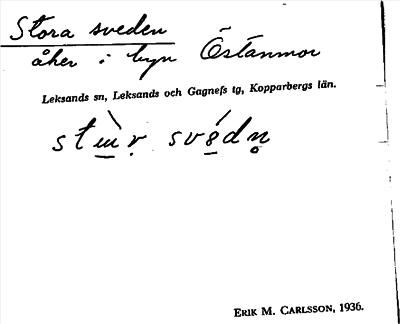 Stora sveden
åker i byn Östanmor
Leksands sn, Leksands och Gagnefs tg, Kopparbergs län.
ERIK M. CARLSSON, 1936.